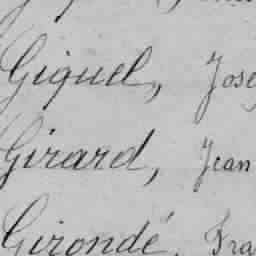 Giquel, Jose
Girard, Jean
Girondé, Fra